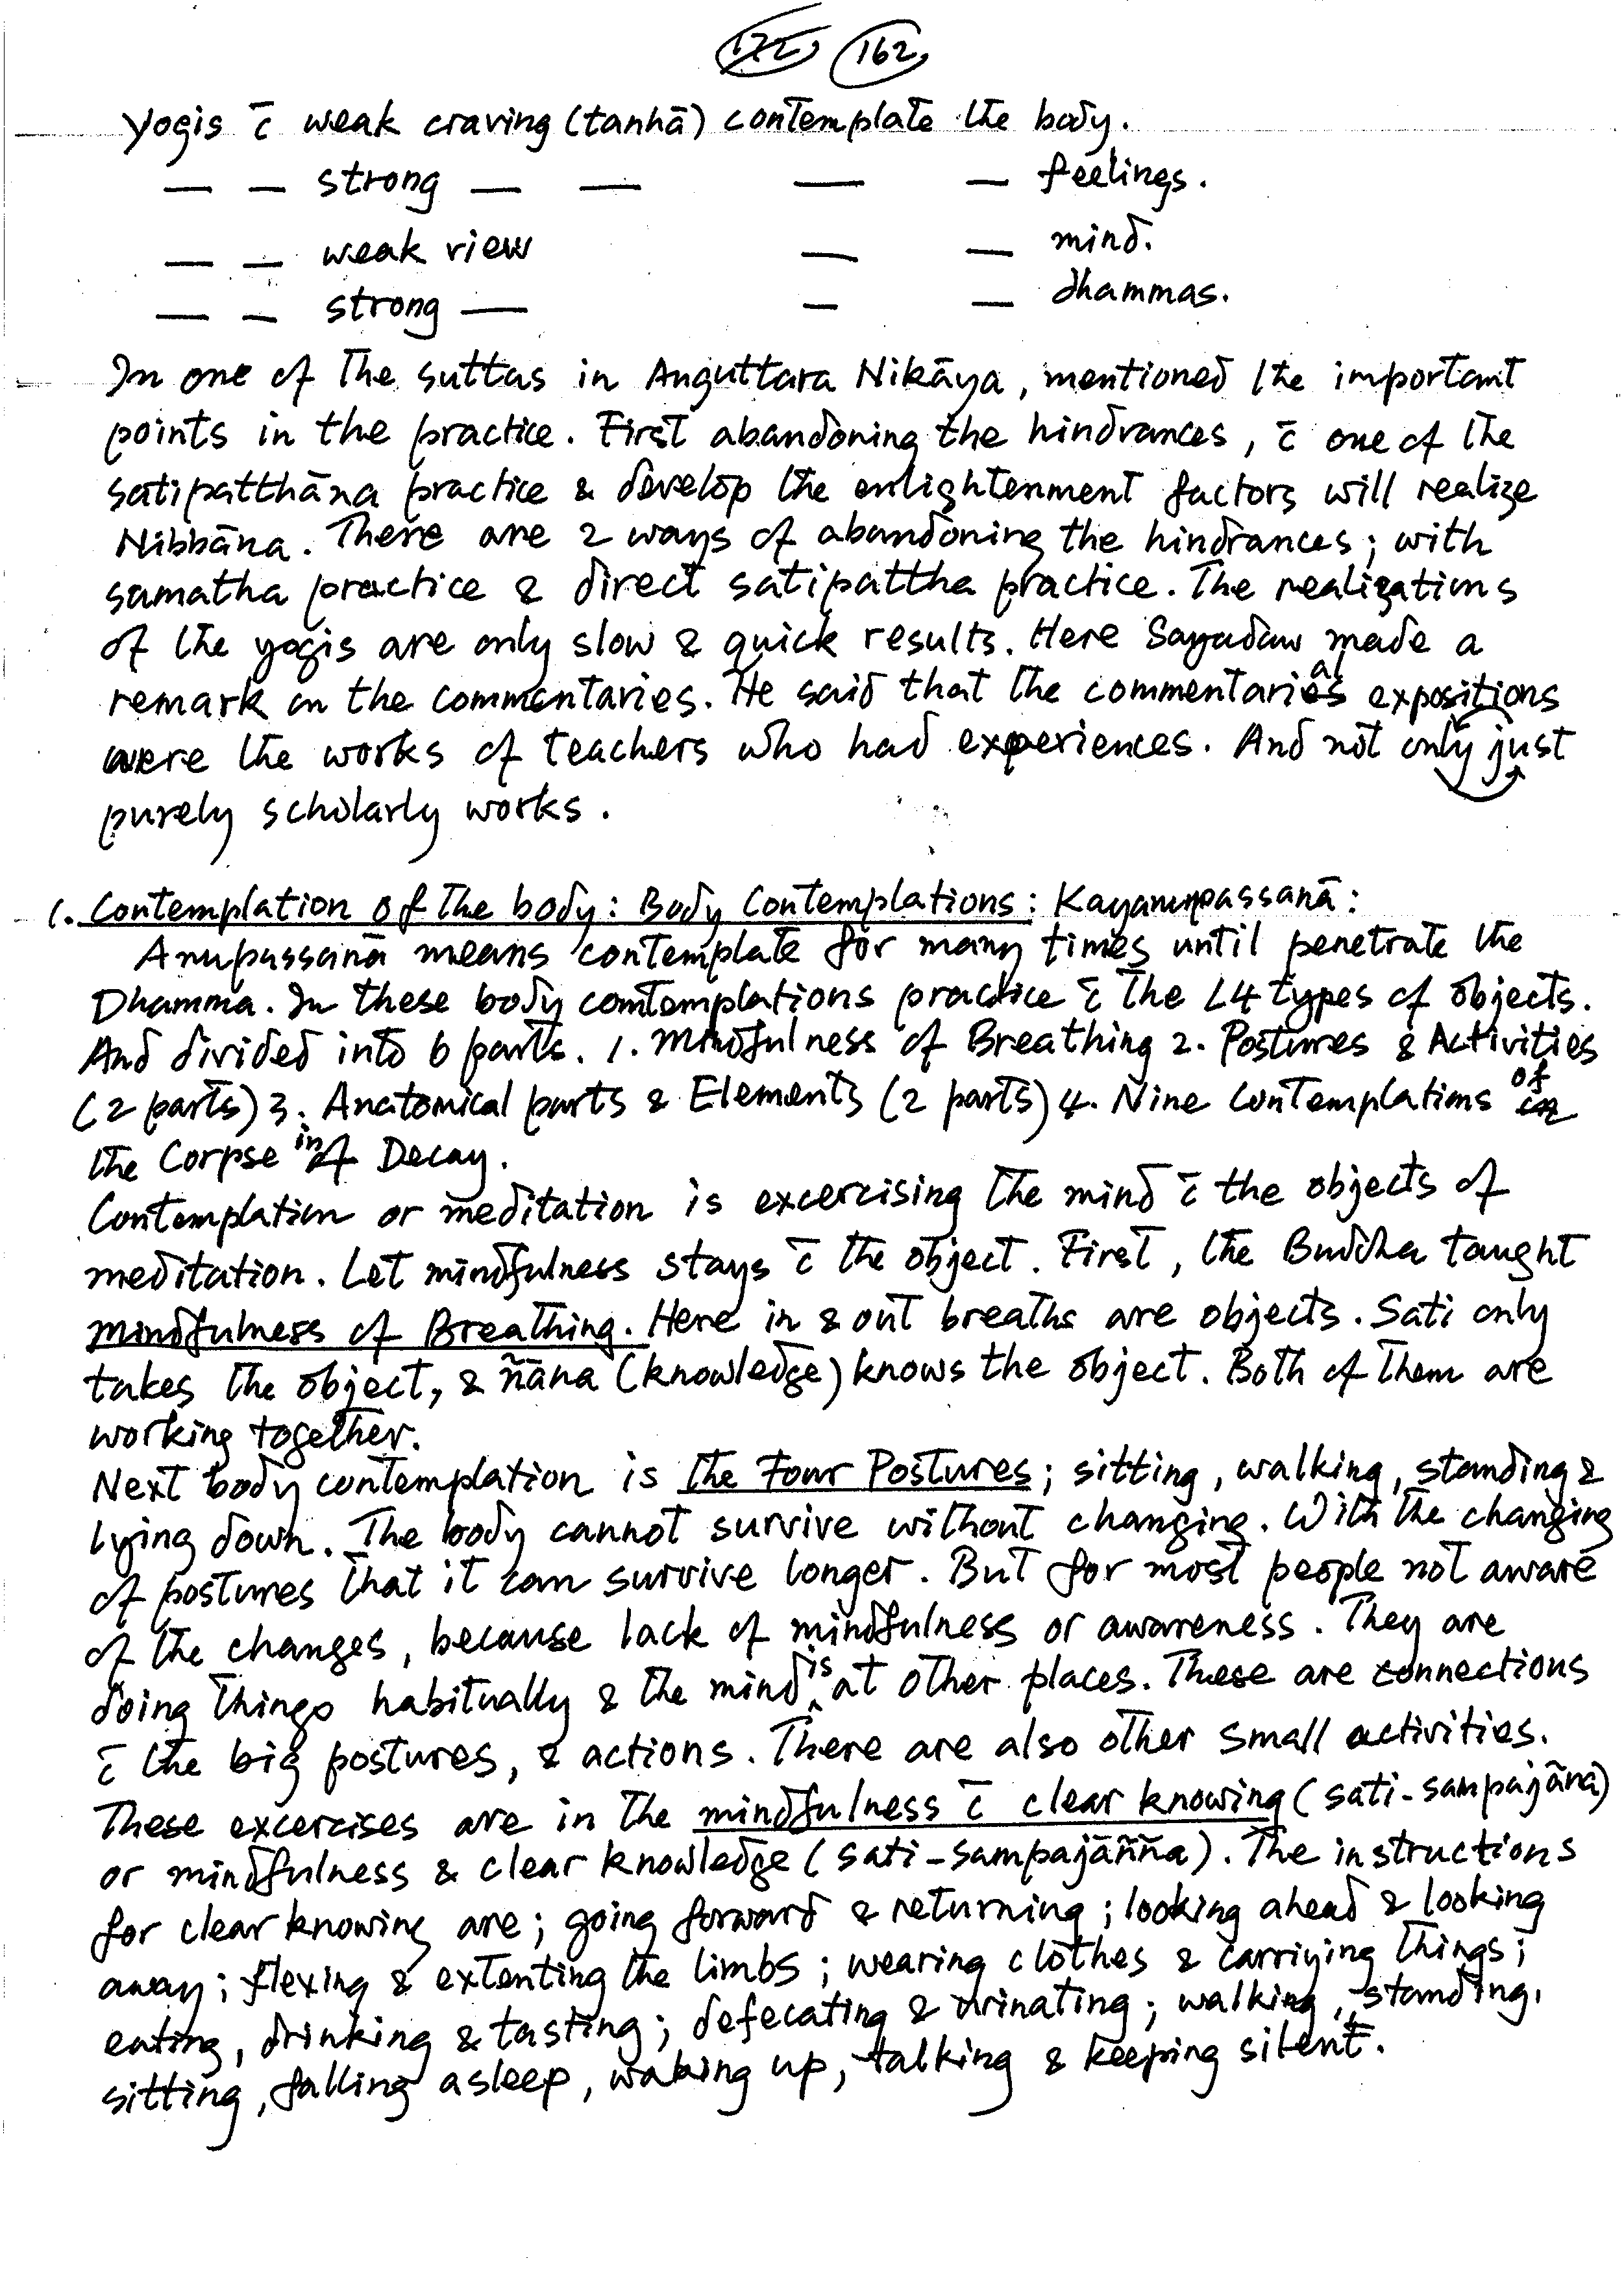 172, 162,
Yogis c̄ weak craving (tanhā) contemplate the body.
— — strong — — — — feelings.
— — weak view — — mind.
— — strong — — — dhammas.
In one of the suttas in Anguttara Nikāya, mentioned the important
points in the practice. First abandoning the hindrances, c̄ one of the
satipatthāna practice & develop the enlightenment factors will realize
Nibbāna. There are 2 ways of abandoning the hindrances; with
samatha practice & direct satipattha practice. The realizations
of the yogis are only slow & quick results. Here Sayadaw made a
remark on the commentaries. He said that the commentarial expositions
were the works of teachers who had experiences. And not only just
purely scholarly works.
1. Contemplation of the body: Body Contemplations: Kayanupassanā:
Anupassanā means contemplate for many times until penetrate the
Dhamma. In these body comtemplations practice c̄ the 14 types of objects.
And divided into 6 parts. 1. Mindfulness of Breathing 2. Postures & Activities
(2 parts) 3. Anatomical parts & Elements (2 parts) 4. Nine Contemplations of
the Corpse in Decay.
Contemplation or meditation is excercising the mind c̄ the objects of
meditation. Let mindfulness stays c̄ the object. First, the Buddha taught
Mindfulness of Breathing. Here in & out breaths are objects. Sati only
takes the object, & ñāna (knowledge) knows the object. Both of them are
working together.
Next body contemplation is the Four Postures; sitting, walking, standing &
lying down. The body cannot survive without changing. With the changing
of postures that it can survive longer. But for most people not aware
of the changes, because lack of mindfulness or awareness. They are
doing things habitually & the mind is at other places. These are connections
c̄ the big postures, & actions. There are also other small activities.
These excercises are in the mindfulness c̄ clear knowing (sati-sampajāna)
or mindfulness & clear knowledge (sati-sampajāñña). The instructions
for clear knowing are; going forward & returning; looking ahead & looking
away; flexing & extenting the limbs; wearing clothes & carriying things;
eating, drinking & tasting; defecating & urinating; walking, standing,
sitting, falling asleep, waking up, talking & keeping silent.